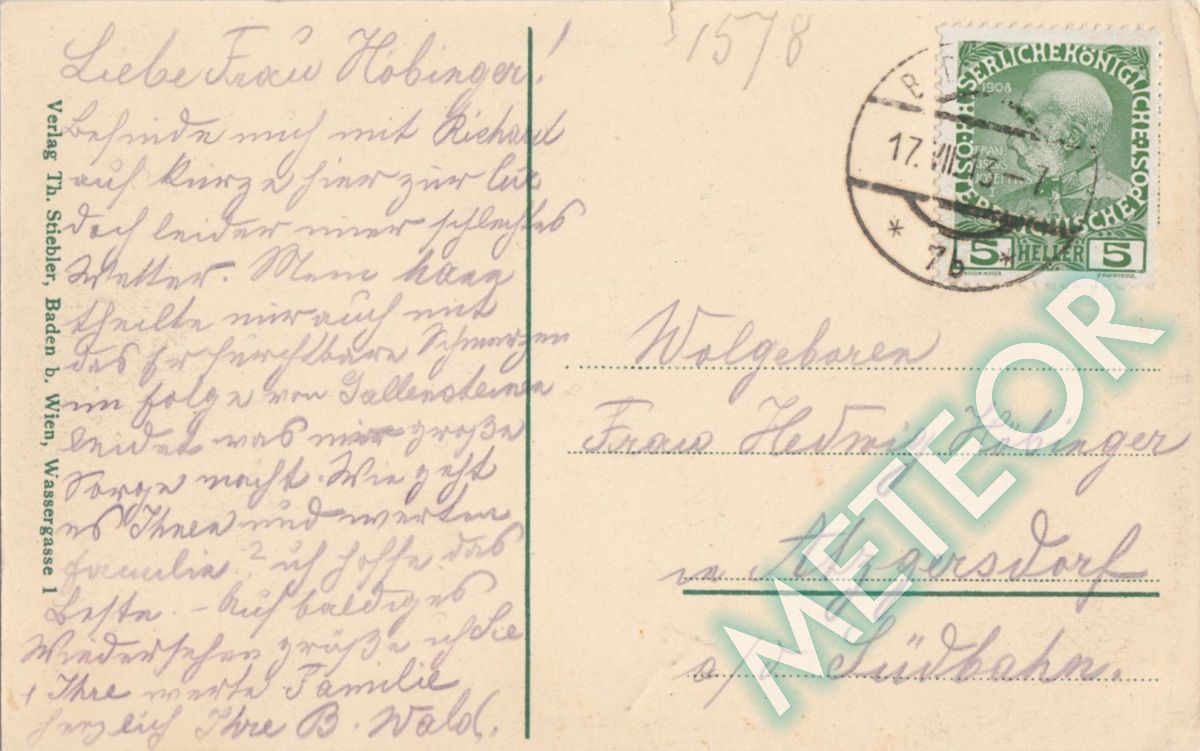 Liebe Frau Höbinger!
Befinde mich mit Richard
auf kurze hier zur Cur
doch leider imer schlechtes
Wetter. Mein
theilte mir auch mit
das Er furchtbare Schmerzen
in folge von Gallensteinen
leidet was mir große
Sorge macht. Wie geht
es Ihnen und werten
Familie? ich hoffe das
Beste. – Auf baldiges
Wiedersehen grüße ich Sie
Ihre werte Familie
herzlich Ihre B. Wald.
Verlag Th. Stiebler, Baden b. Wien, Wassergasse 1
1578
KAISERLICHE KÖNIGLICHE ÖSTERREICHISCHE POST
1908
FRANZISKUS JOSEPH I
5 HELLER 5
17. VII
* 7b *
Wolgeboren
Frau Hedwig Höbinger
in Atzgersdorf
a/d Südbahn.
METEOR